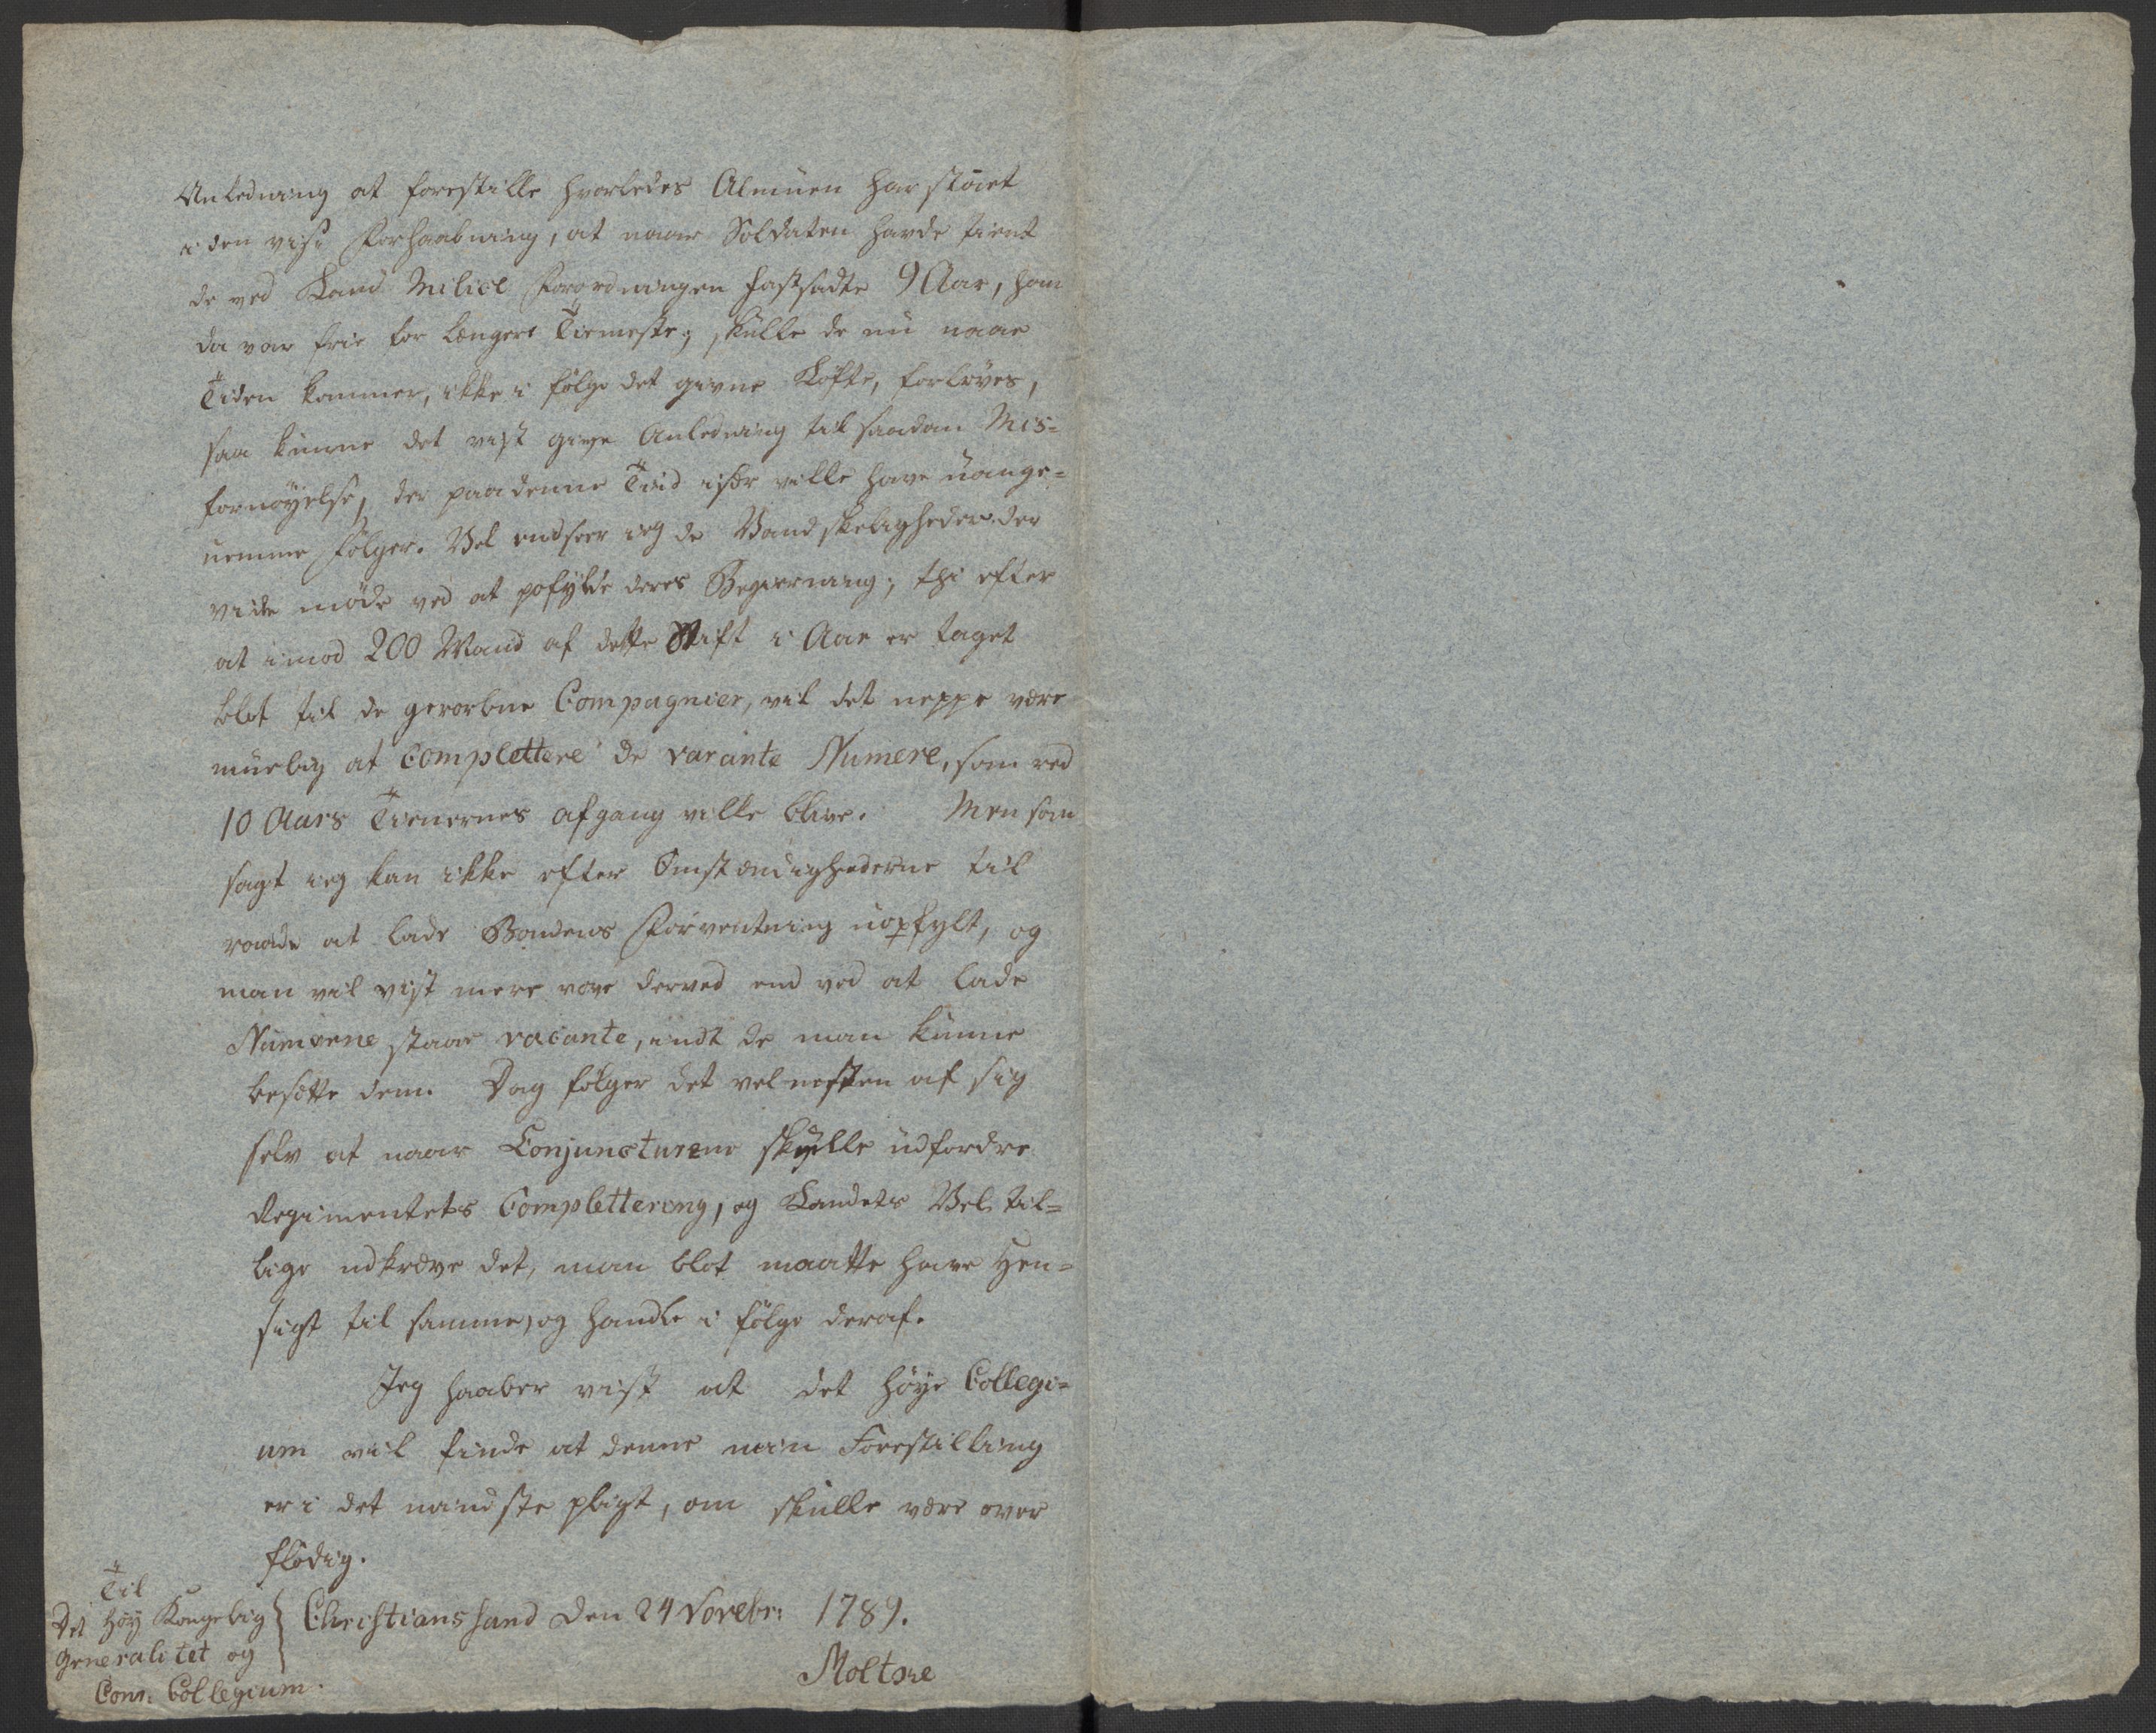 Anledning at forestille hvorledes Almuen har stöet
i den visse Forhaabning, at naar Soldaten havde tient
de ved Land Milice Forordningen fastsadte 9 Aar, han
da var frie for længere Tieneste; skulle de nu naar
Tiden kommer, ikke i følge det givne Löfte, forløves,
saa kunne det vist give Anledning til saadan Mis-
fornöyelse, der paa denne Tiid især ville have uange-
nemme Følger. Vel indseer ieg de Vandskeligheder der
ville möde ved at pofylde deres Begiering; thi efter
at imod 200 Mand af dette Stift i Aar er taget
blot til de gevorbne Compagnier, vil det neppe være
muelig at Complettere de vacante Numere, som ved
10 Aars Tienernes afgang ville blive. Men som
sagt ieg kan ikke efter Omstændighederne til
raade at lade Bondens Forventning uopfylt, og
man vil vist mere vove derved end ved at lade
Numerne staae vacante, indtde man kunne
besætte dem. Dog følger det vel nesten af sig
selv at naar Conjuncturene skulle udfordre
Regimentets Complettering, og Landets Vel til-
lige udkræve det, man blot maatte have Hen-
sigt til samme, og handle i følge deraf.
Jeg haaber vist at det höye Collegi-
um vil finde at denne min Forestilling
er i det mindste pligt, om skulle være over
flödig.
Til
Det Höy Kongelig
Generalitet og
Com: Collegium.
Christianssand den 24 Novebr: 1789.
Moltke